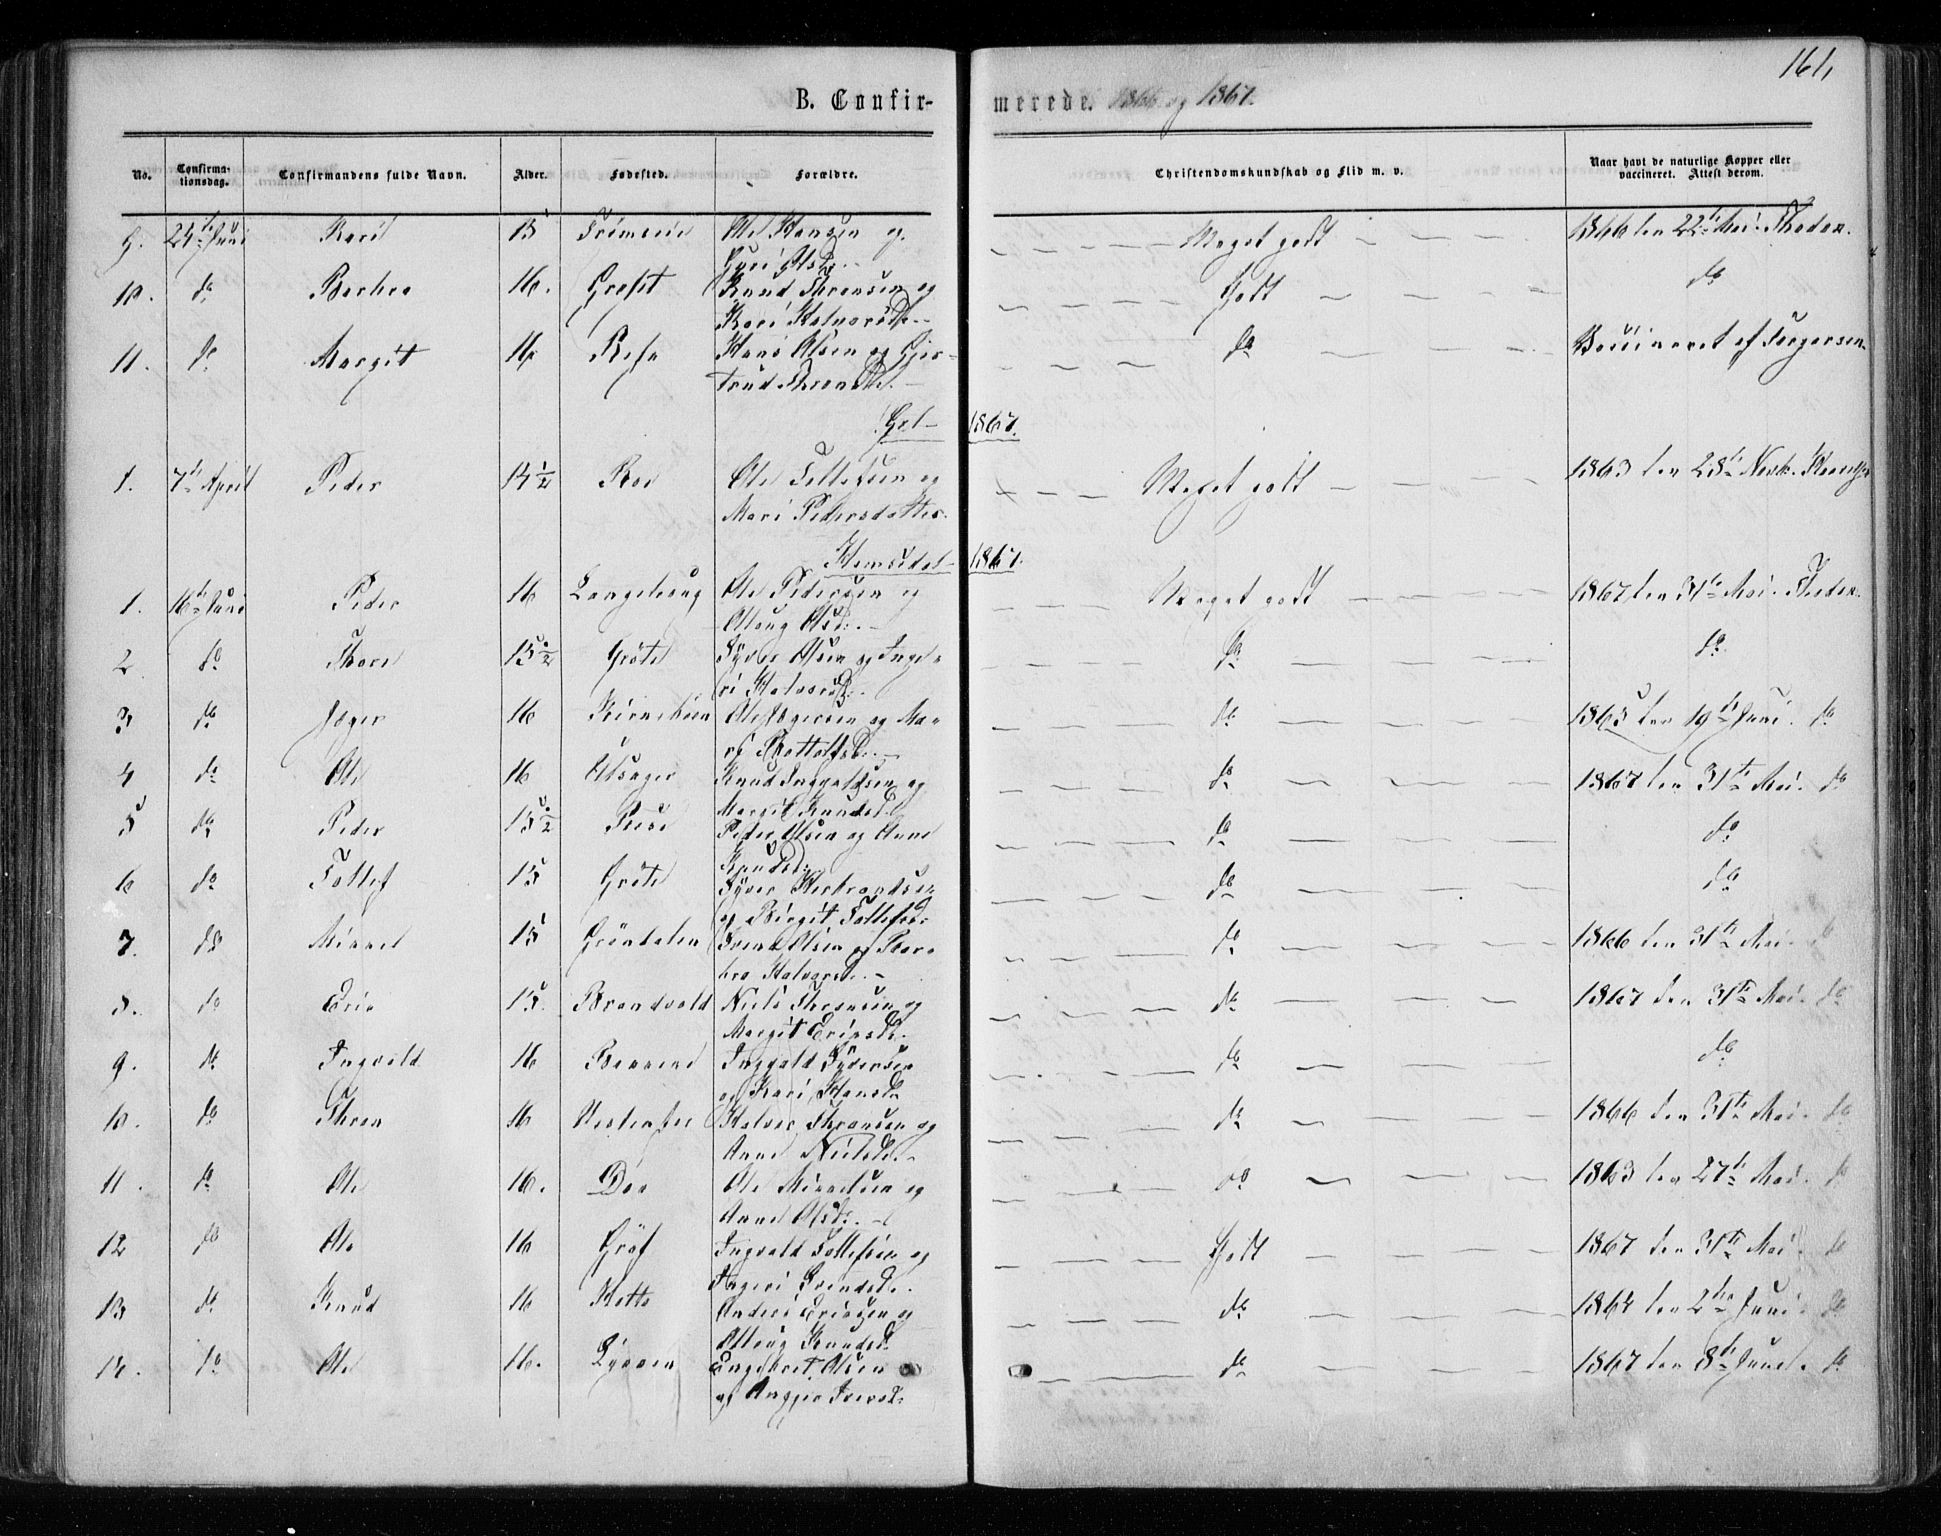 161,
B. Confir-
merede. 1866 og 1867.
No.
Confirma-
tionsdag.
Confirmandens fulde Navn.
Alder.
Fødested.
Forældre.
Christendomskundskab og Flid m. v.
Naar havt de naturlige Kopper eller
vaccineret. Attest derom.
9. 24de Juni Kari 15 Ole Hansen og Meget godt 1866 den 22de Mai
Guri Olsd.
10. do Barbro 16. Knud Thronsen og Godt do
Kari Halvorsd.
11. do Margit 16 Hans Olsen og Gjer- do
trud Thronsd.
Gol 1867.
1. 7de April Peder 14 1/2 Ole Tollefsen og Meget godt 1863 den 28de Novb.
Mari Pedersdatter.
Hemsedal 1867.
1. 16de Juni Peder 16 Langehaug Ole Pedersen og Meget godt 1867 den 31te Mai.
Olsd.
2 do 15 1/2 Grøte Syver Olsen og Inge- do do
ri Halvorsd.
3 do Jæger 16 Ole Jægersen og Ma- do 1865 den 19de Juni. do
ri Bottolfsd.
4 do Ole 16 Ulsager Knud Ingvaldsen og do 1867 den 31te Mai. do
Margit Knudsd.
5 do Peder 15 1/2 Peder Olsen og Anne do do
Knudsd.
6 do Tollef 15 Grøte Syver Herbrandsen do do
og Birgit Tollefsd.
7. do Mikkel 15 Grøndalen Svend Olsen og Bar- do 1866 den 31te Mai. do
bro Halvorsd.
8. do Erik 15. Brandvold Niels Thronsen og do 1867 den 31te Mai. do
Margit Eriksd.
9. do Ingvald 16 Ingvald Syversen do do
og Kari Hansd.
10. do Thron 16 Halvor Thronsen og do 1866 den 31te Mai. do
Anne Nielsd.
11. do Ole 16. Ole Mikkelsen og do 1863 den 27de Mai. do
Anne Olsd.
12 do Ole 16 Grøf Ingvald Tollefsen og Godt 1867 den 31te Mai. do
Ingeri Svendsd.
13 do Knud 16 Anders Eriksen og do 1864 den 2den Juni. do
Knudsd.
14. do Ole 16. Engebret Olsen do 1867 den 8de Juni. do
og